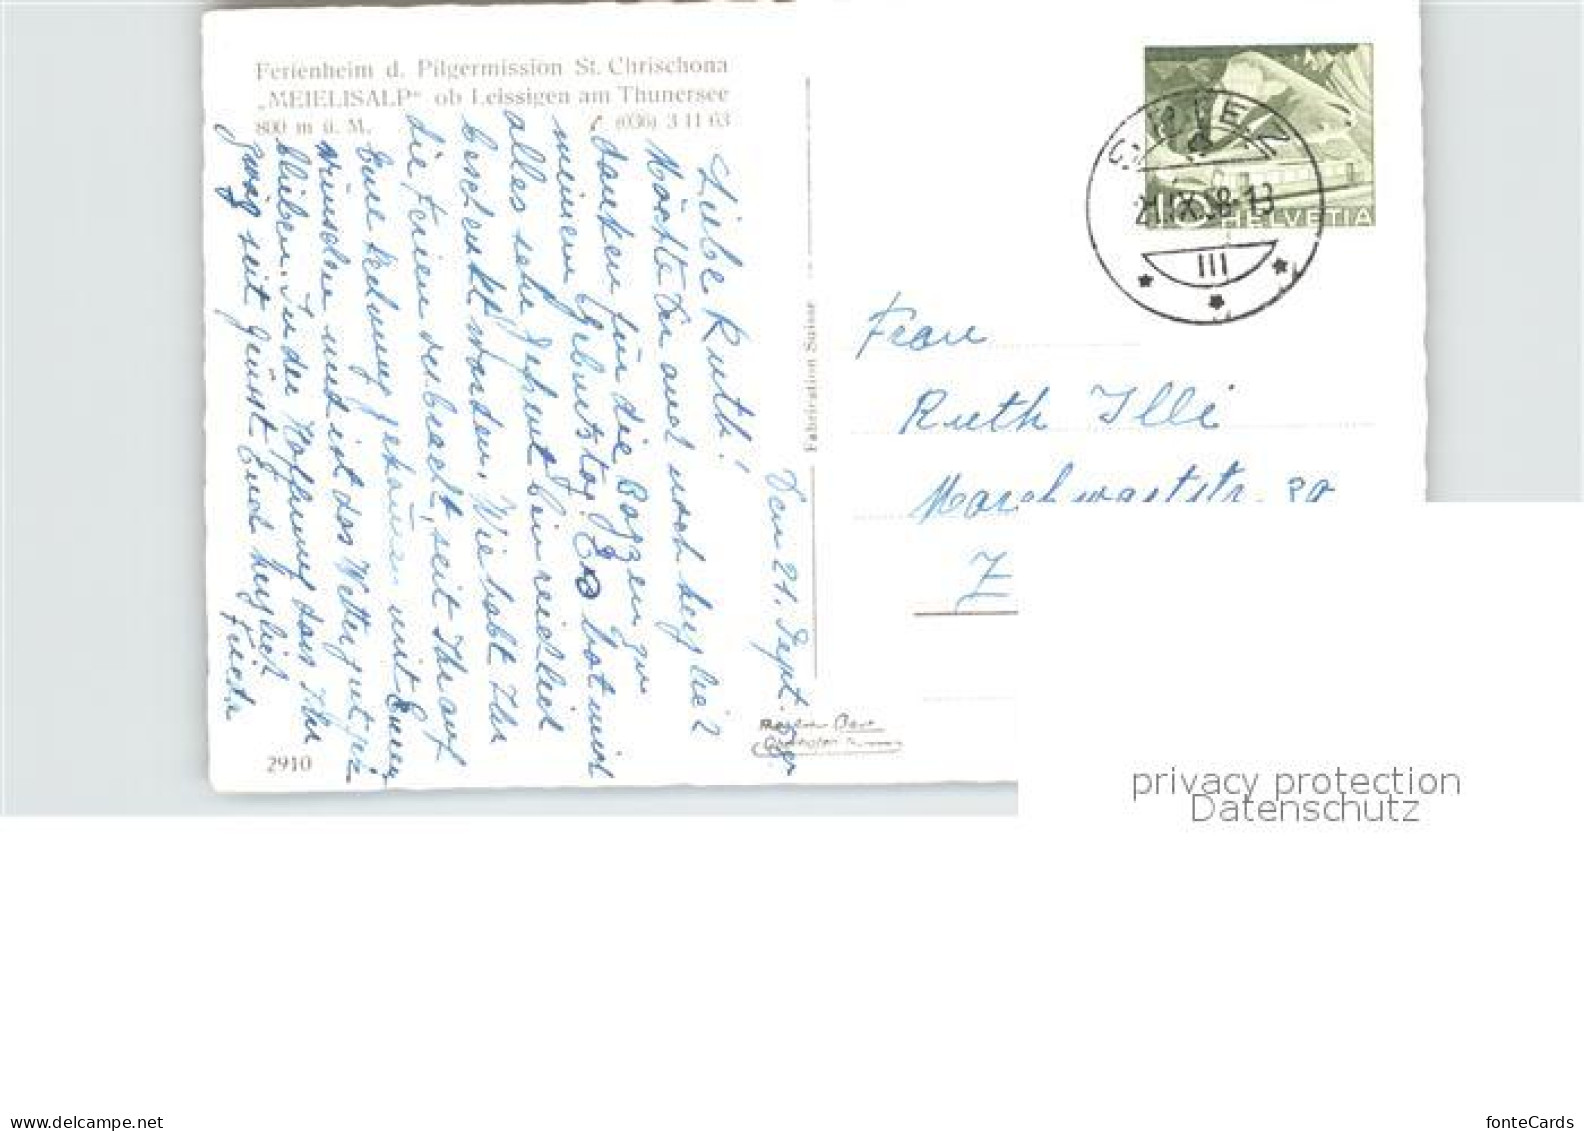 Ferienheim d. Pilgermission St. Chrischona
„MEIELISALP“ ob Leissigen am Thunersee
800 m ü. M. (036) 3 11 63
Den 21. Sept.
Liebe Ruth!
Möchte Dir auch noch herzlich
danken für die Batzen zu
meinem Geburtstag. Es hat mich
alles sehr gefreut bin reichlich
beschenkt worden. Wie habt Ihr
die Ferien verbracht, seit Ihr auf
Eure Rechnung gekommen mit Eurem
wünschen und ist das Wetter gut ge-
blieben. In der Hoffnung dass Ihr
zwäg seit grüsst Euch herzlich
Frieda
2910
Fabrication Suisse
21.IX.58-18
III
10 HELVETIA
Frau
Ruth Illi
Z
privacy protection
Datenschutz
www.delcampe.net
fonteCards